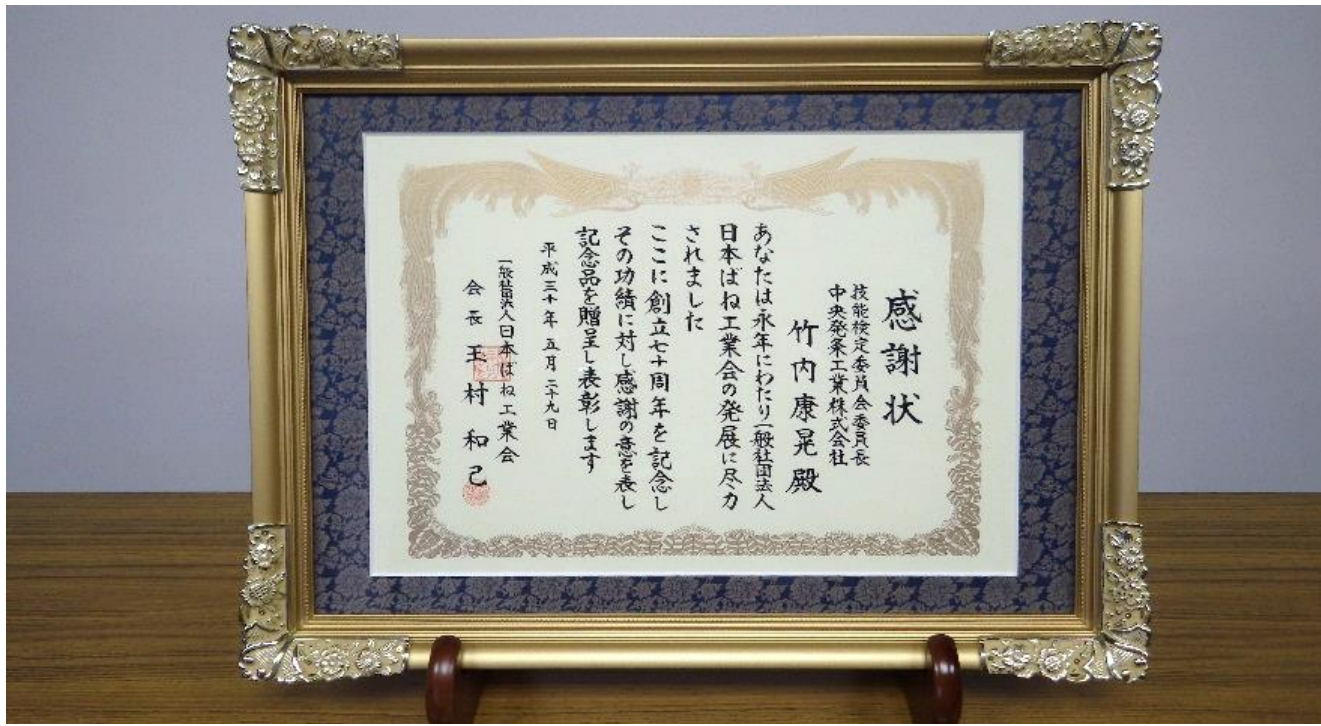 感謝状
技能検定委員会委員長
中央発条工業株式会社
竹内康晃殿
あなたは永年にわたり一般社団法人
日本ばね工業会の発展に尽力
されました
ここに創立七十周年を記念し
その功績に対し感謝の意を表し
記念品を贈呈し表彰します
平成三十年五月二十九日
一般社団法人日本ばね工業会
会長玉村和己